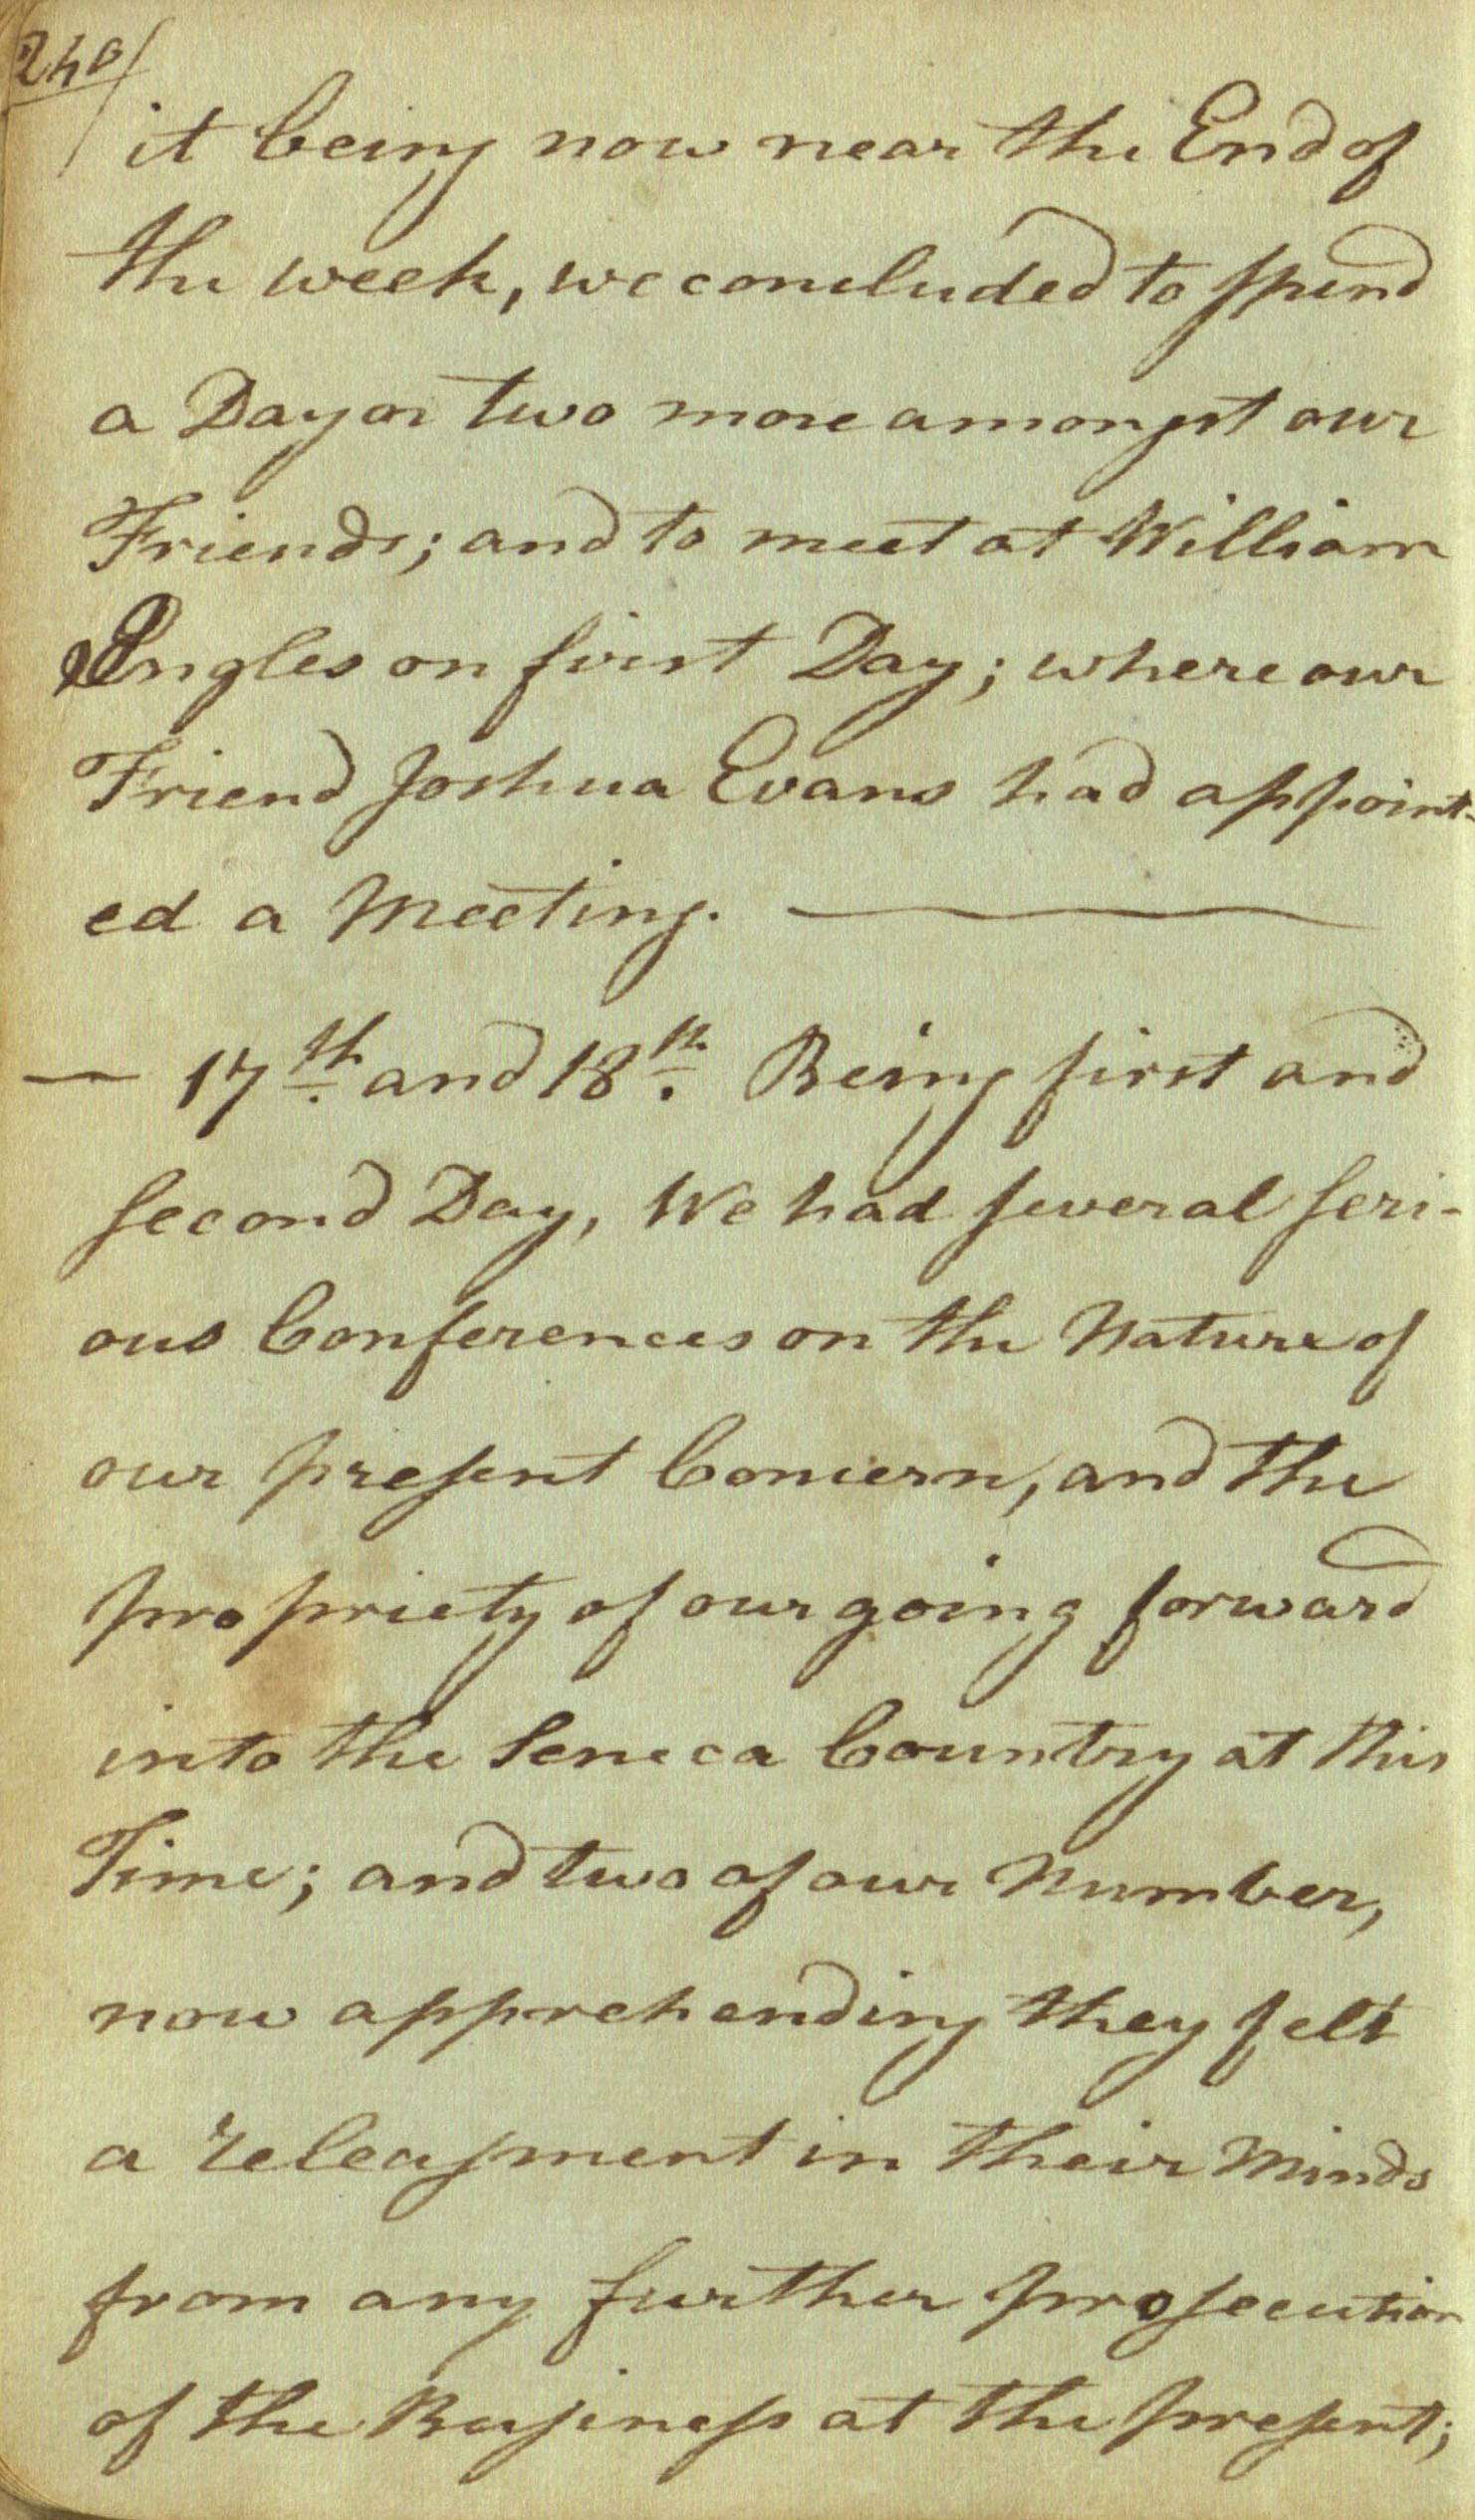 240
it being now near the End of
the week, we concluded to spend
a Day or two more amongst our
Friends; and to meet at William
Engles on first Day; where our
Friend Joshua Evans had appoint-
ed a Meeting. —
— 17th. and 18th. Being first and
second Day, We had several seri-
ous Conferences on the Nature of
our present Concern, and the
propriety of our going forward
into the Seneca Country at this
Time; and two of our Number,
now apprehending they felt
a releasment in their Minds
from any further prosecution
of the Business at the present;